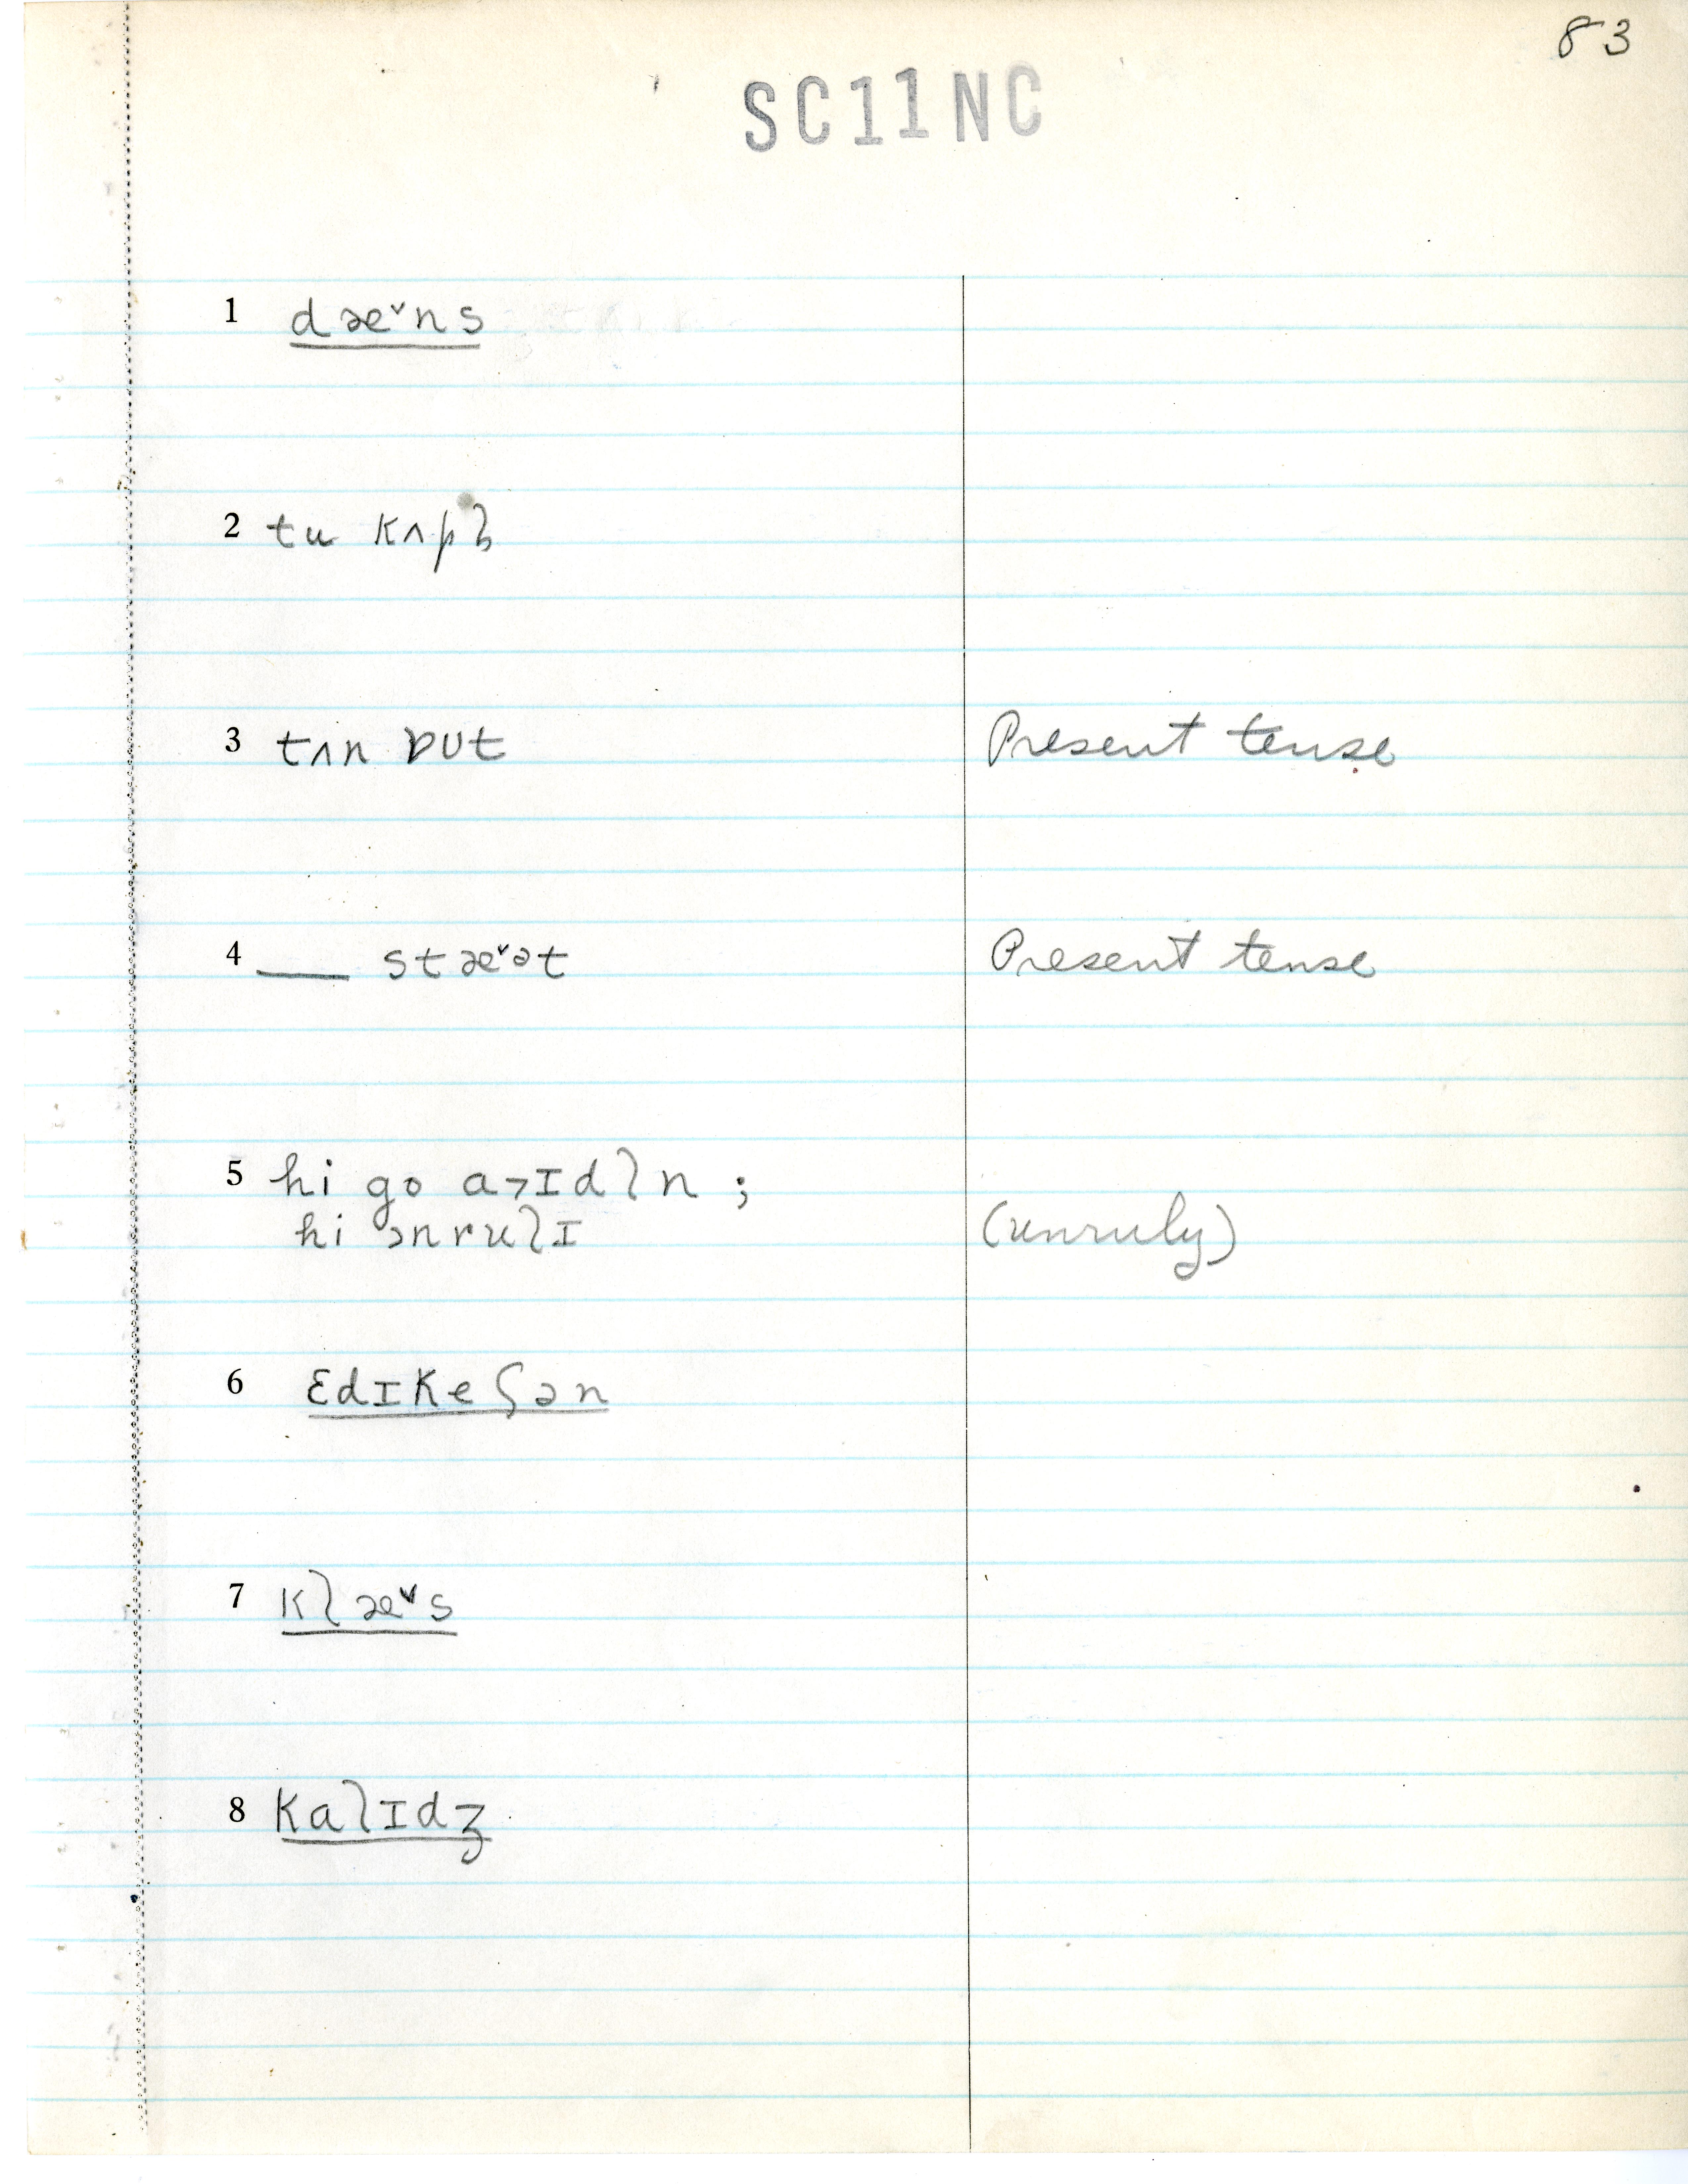 83
SC11NC
1 dæˇns
2 tu kʌpl̩
3 tʌn ɒut Present tense
4 ___ stæˇət Present tense
5 hi go a>ɪdln ;
hi ənrulɪ (unruly)
6 ɛdɪkeʃən
7 klæˇs
8 kalɪdʒ